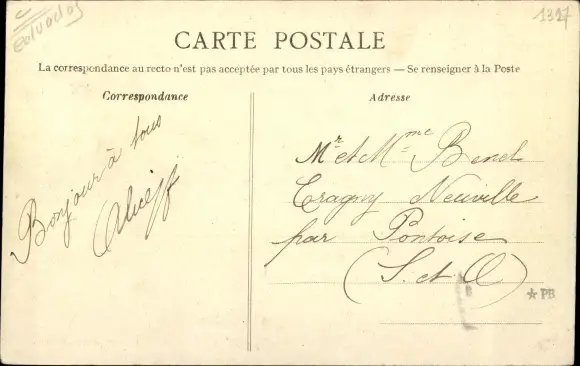 Calvados
1327
CARTE POSTALE
La correspondance au recto n'est pas acceptée par tous les pays étrangers — Se renseigner à la Poste
Correspondance
Bonjour à tous
Adresse
Mr et Mme
Eragny Neuville
par Pontoise
(S. et O)
★ PB